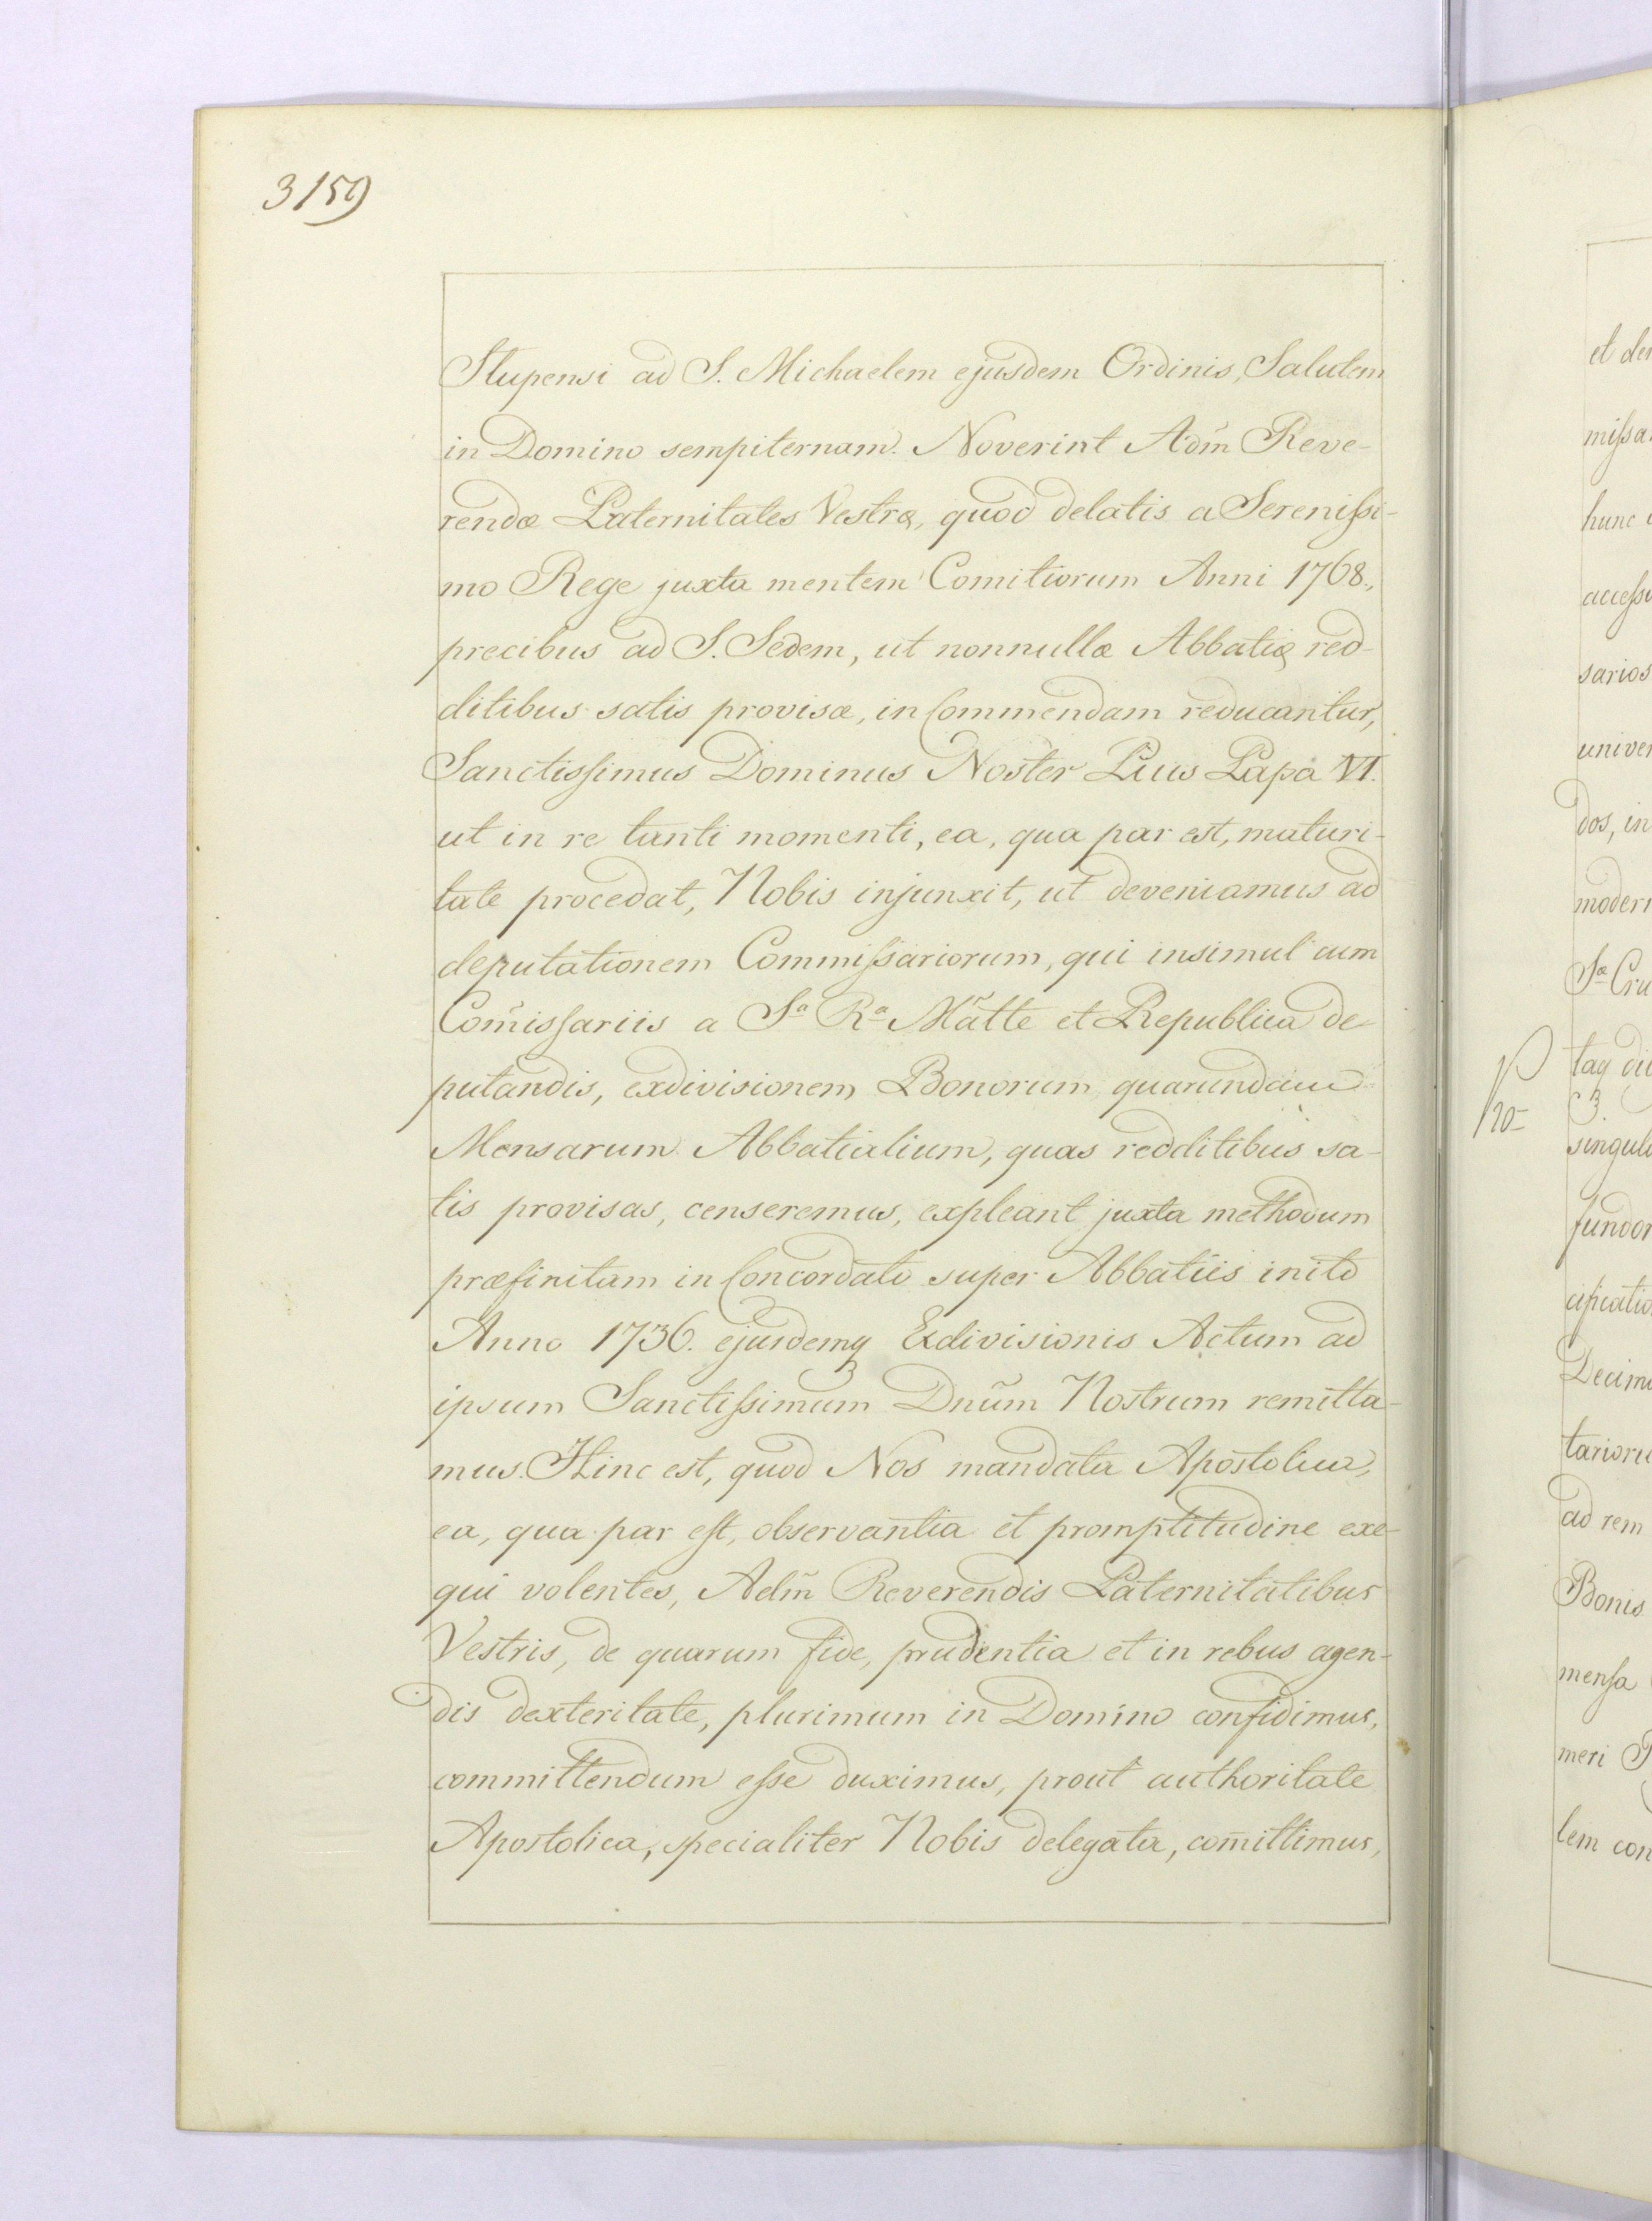 3159
Stupensi ad S. Michaelem ejusdem Ordinis, Salutem
in Domino sempiternam. Noverint Adm̃ Reve-
rendæ Paternitates Vestræ, quod delatis a Serenissi-
mo Rege juxta mentem Comitiorum Anni 1768.,
precibus ad S. Sedem, ut nonnullæ Abbatiæ red-
ditibus satis provisæ, in Commendam reducantur,
Sanctissimus Dominus Noster Pius Papa VI.
ut in re tanti momenti, ea, qua par est, maturi-
tate procedat, Nobis injunxit, ut deveniamus ad
deputationem Commissariorum, qui insimul cum
Com̃issariis a Sa Ra Mãtte et Republica de
putandis, exdivisionem Bonorum quarundam
Mensarum Abbatialium, quas redditibus sa-
tis provisas, censeremus, expleant juxta methodum
præfinitam in Concordato super Abbatiis inito
Anno 1736. ejusdemq Exdivisionis Actum ad
ipsum Sanctissimum Dnũm Nostrum remitta-
mus. Hinc est, quod Nos mandata Apostolica,
ea, qua par est, observantia et promptitudine exe-
qui volentes, Adm̃ Reverendis Paternitatibus
Vestris, de quarum fide, prudentia et in rebus agen-
dis dexteritate, plurimum in Domino confidimus,
committendum esse duximus, prout authoritate
Apostolica, specialiter Nobis delegata, com̃ittimus,
et
missa
hunc
accessi
sarios
univer
dos, in
modern
Sa Cru
taq
singul
fundor
Decim
ad rem
Bonis
mensa
meri
lem con